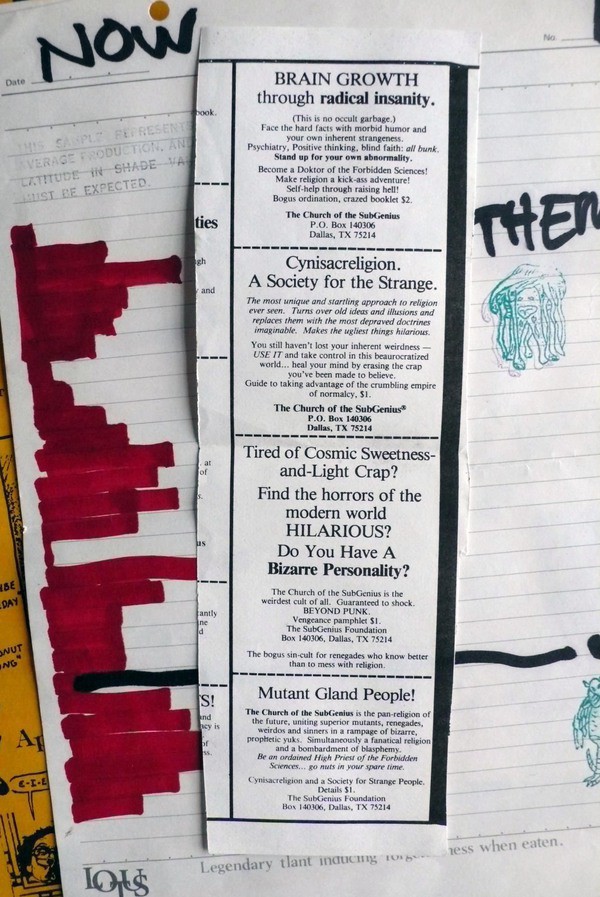 NOW
No.
Date
THIS SAMPLE REPRESENTS
AVERAGE PRODUCTION, AND
LATITUDE IN SHADE VA
MUST BE EXPECTED.
book.
ties
and
at
of
us
antly
S!
and
of
BRAIN GROWTH
through radical insanity.
(This is no occult garbage.)
Face the hard facts with morbid humor and
your own inherent strangeness.
Psychiatry, Positive thinking, blind faith: all bunk.
Stand up for your own abnormality.
Become a Doktor of the Forbidden Sciences!
Make religion a kick-ass adventure!
Self-help through raising hell!
Bogus ordination, crazed booklet $2.
The Church of the SubGenius
P.O. Box 140306
Dallas, TX 75214
Cynisacreligion.
A Society for the Strange.
The most unique and startling approach to religion
ever seen. Turns over old ideas and illusions and
replaces them with the most depraved doctrines
imaginable. Makes the ugliest things hilarious.
You still haven't lost your inherent weirdness —
USE IT and take control in this beaurocratized
world... heal your mind by erasing the crap
you've been made to believe.
Guide to taking advantage of the crumbling empire
of normalcy, $1.
The Church of the SubGenius®
P.O. Box 140306
Dallas, TX 75214
Tired of Cosmic Sweetness-
and-Light Crap?
Find the horrors of the
modern world
HILARIOUS?
Do You Have A
Bizarre Personality?
The Church of the SubGenius is the
weirdest cult of all. Guaranteed to shock.
BEYOND PUNK.
Vengeance pamphlet $1.
The SubGenius Foundation
Box 140306, Dallas, TX 75214
The bogus sin-cult for renegades who know better
than to mess with religion.
Mutant Gland People!
The Church of the SubGenius is the pan-religion of
the future, uniting superior mutants, renegades,
weirdos and sinners in a rampage of bizarre,
prophetic yuks. Simultaneously a fanatical religion
and a bombardment of blasphemy.
Be an ordained High Priest of the Forbidden
Sciences... go nuts in your spare time.
Cynisacreligion and a Society for Strange People.
Details $1.
The SubGenius Foundation
Box 140306, Dallas, TX 75214
THEN
E-I-E
LOTUS
Legendary plant inducing forgetfulness when eaten.